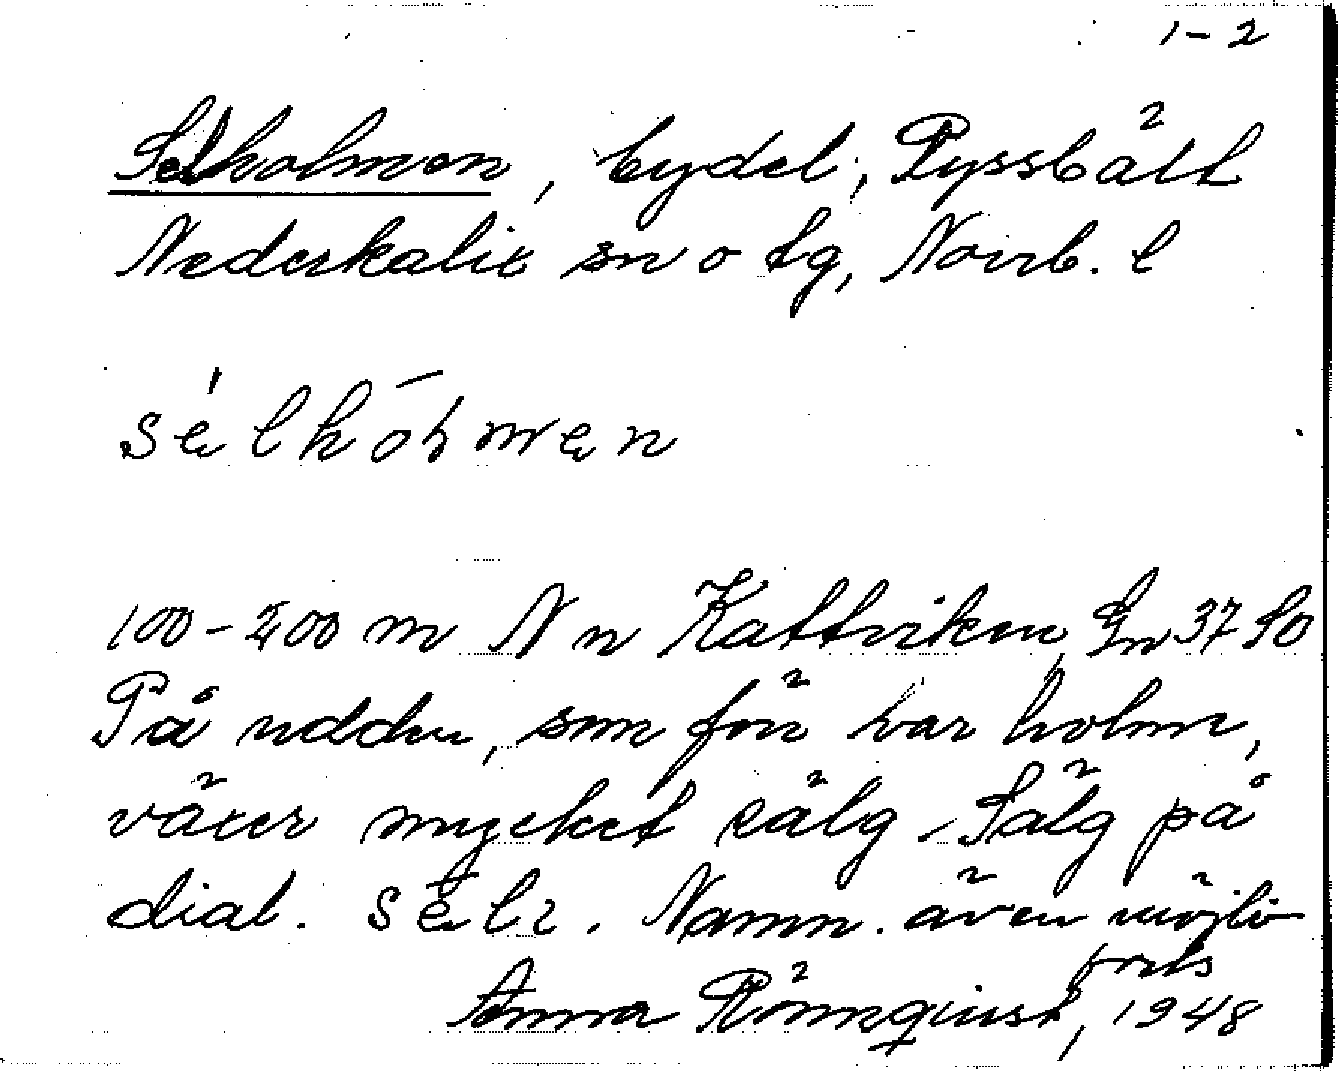 1-2
Selholmen, bydel, Ryssbält
Nederkalix sn o tg, Norrb. l
100-200 m N n Kattviken, Gn 37 SO
På udden, som förr var holme,
växer mycket sälg. Sälg på
dial. Namn. även möjli-
forts
Anna Rönnqvist, 1948